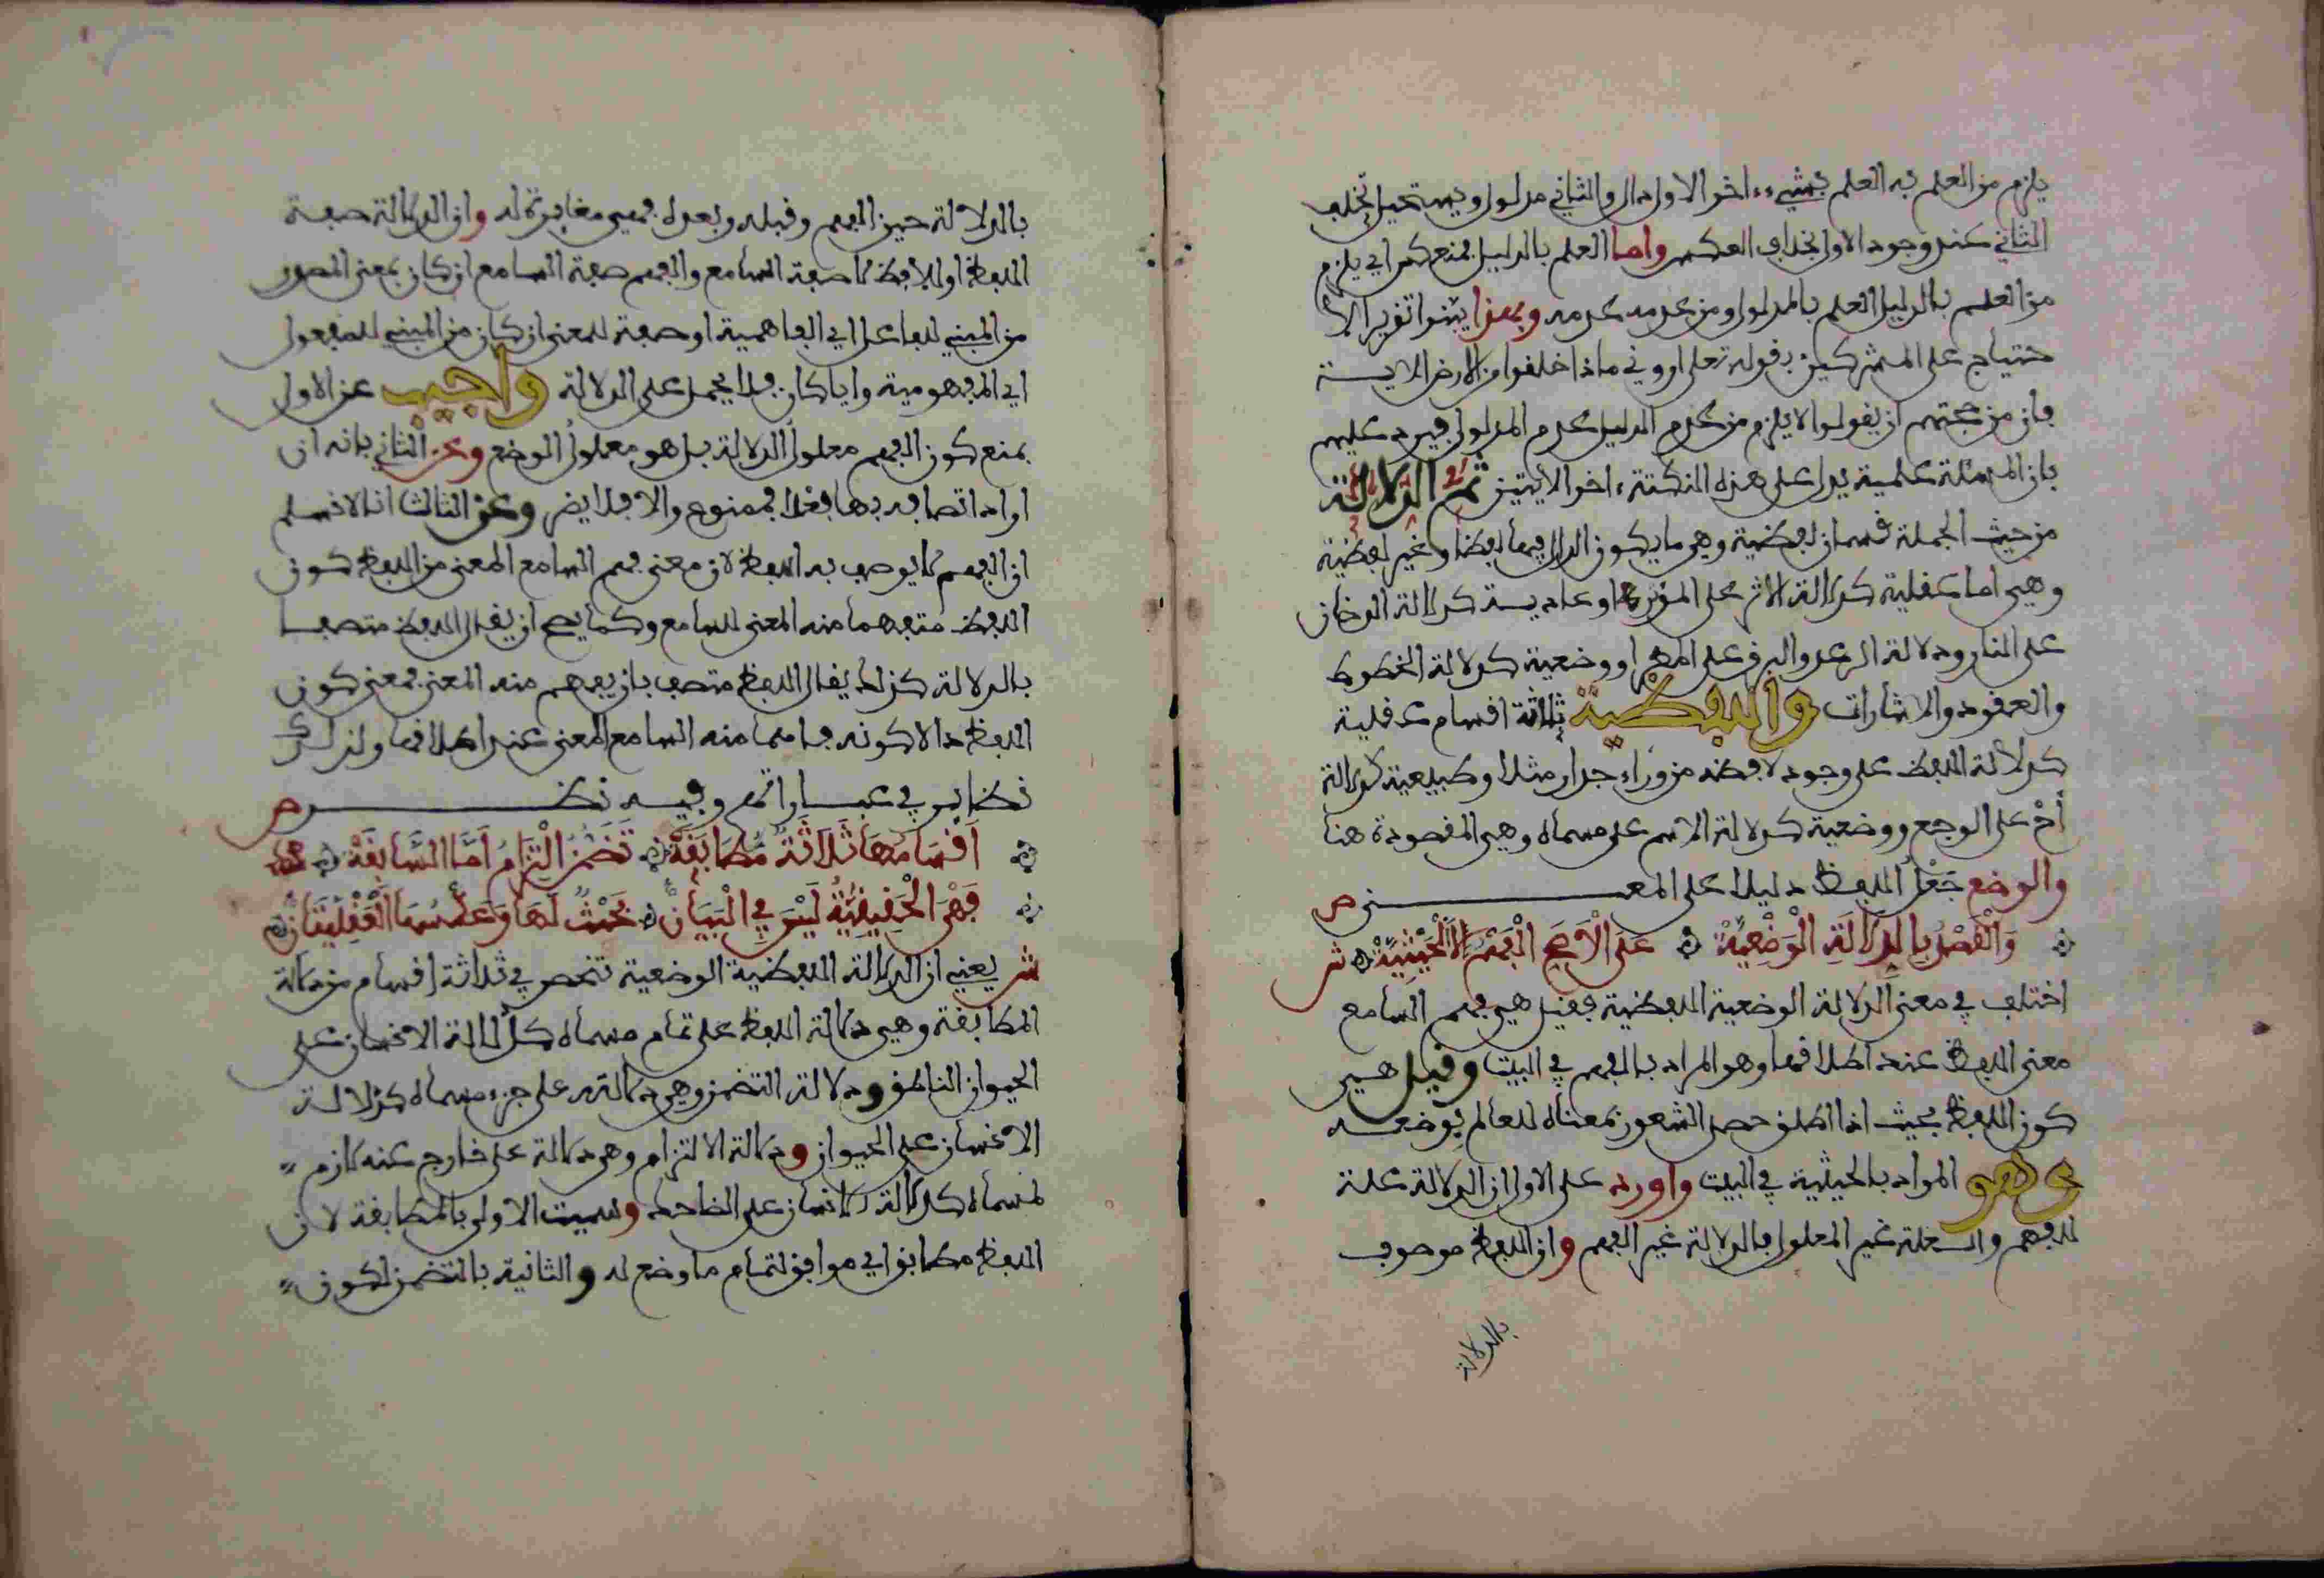 يلزم من العلم به العلم بشيء اخر الاول دال والثاني مدلول ويستحيل تخلف
الثاني عند وجود الاول بخلاف العكس واما العلم بالدليل فمنعكس اي يلزم
من العلم بالدليل العلم بالمدلول ومن عدمه عدمه وبهذا يتم تقرير الا
حتجاج على المشركين بقوله تعلى اروني ماذا خلقوا من الارض الاية
فان من حجتهم ان يقولوا لا يلزم من عدم الدليل عدم المدلول فيرد عليهم
بان المسئلة علمية يدل على هذه النكتة اخر الايتين ثم الدلالة
من حيث الجملة قسمان لفظية وهي ما يكون الدال فيها لفظا وغير لفظية
وهي اما عقلية كدلالة الاثر على المؤثر او عادية كدلالة الدخان
على النار ودلالة الرعد والبرق على المطر او وضعية كدلالة الخطوط
والعقود والاشارات واللفظية ثلاثة اقسام عقلية
كدلالة اللفظ على وجود لافظه من وراء جدار مثلا وطبيعية كدلالة
أخ على الوجع ووضعية كدلالة الاسم على مسماه وهي المقصودة هنا
والوضع جعل اللفظ دليلا على المعنى ص
وَالْقَصْدُ بِالدِّلَالَةِ الْوَضْعِيَّةْ عَلَى الْأَصَحِّ الْفَهْمُ لَا الْحَيْثِيَّةْ ش
اختلف في معنى الدلالة الوضعية اللفظية فقيل هي فهم السامع
معنى اللفظ عند اطلاقها وهو المراد بالفهم في البيت وقيل هي
كون اللفظ بحيث اذا اطلق حصل الشعور بمعناه للعالم بوضعه
وهو المراد بالحيثية في البيت واورد على الاول ان الدلالة علة
للفهم والعلة غير المعلول فالدلالة غير الفهم وان اللفظ موصوف
بالدلالة
بالدلالة حين الفهم وقبله وبعده فهي مغايرة له وان الدلالة صفة
اللفظ او اللافظ لا صفة السامع والفهم صفة السامع ان كان بمعنى المصدر
من المبني للفاعل اي الفاهمية او صفة للمعنى ان كان من المبني للمفعول
اي المفهومية وايا كان فلا يحمل على الدلالة واجيب عن الاول
بمنع كون الفهم معلول الدلالة بل هو معلول الوضع وعن الثاني بانه ان
اراد اتصافه بها فعلا فممنوع والا فلا يضر وعن الثالث انا لا نسلم
ان الفهم لا يوصف به اللفظ لان معنى فهم السامع المعنى من اللفظ كون
اللفظ متفهما منه المعنى للسامع وكما يصح ان يقال اللفظ متصف
بالدلالة كذلك يقال اللفظ متصف بان يفهم منه المعنى فمعنى كون
اللفظ دالا كونه فاهما منه السامع المعنى عند اطلاقها ولذلك
نظاير في عباراتهم وفيه نظر ص
أَقْسَامُهَا ثَلَاثَةٌ مُطَابَقَةْ تَضَمُّنُ الْتِزَامُ أَمَّا السَّابِقَةْ
فَهْيَ الْحَقِيقِيَّةُ لَيْسَ فِي الْبَيَانْ بَحْثٌ لَهَا وَعَكْسُهَا الْعَقْلِيَّتَانْ
ش يعني ان الدلالة اللفظية الوضعية تنحصر في ثلاثة اقسام دلالة
المطابقة وهي دلالة اللفظ على تمام مسماه كدلالة الانسان على
الحيوان الناطق ودلالة التضمن وهي دلالته على جزء مسماه كدلالة
الانسان على الحيوان ودلالة الالتزام وهي دلالة على خارج عنه لازم
لمسماه كدلالة الانسان على الضاحك وسميت الاولى بالمطابقة لان
اللفظ مطابق اي موافق لتمام ما وضع له والثانية بالتضمن لكون